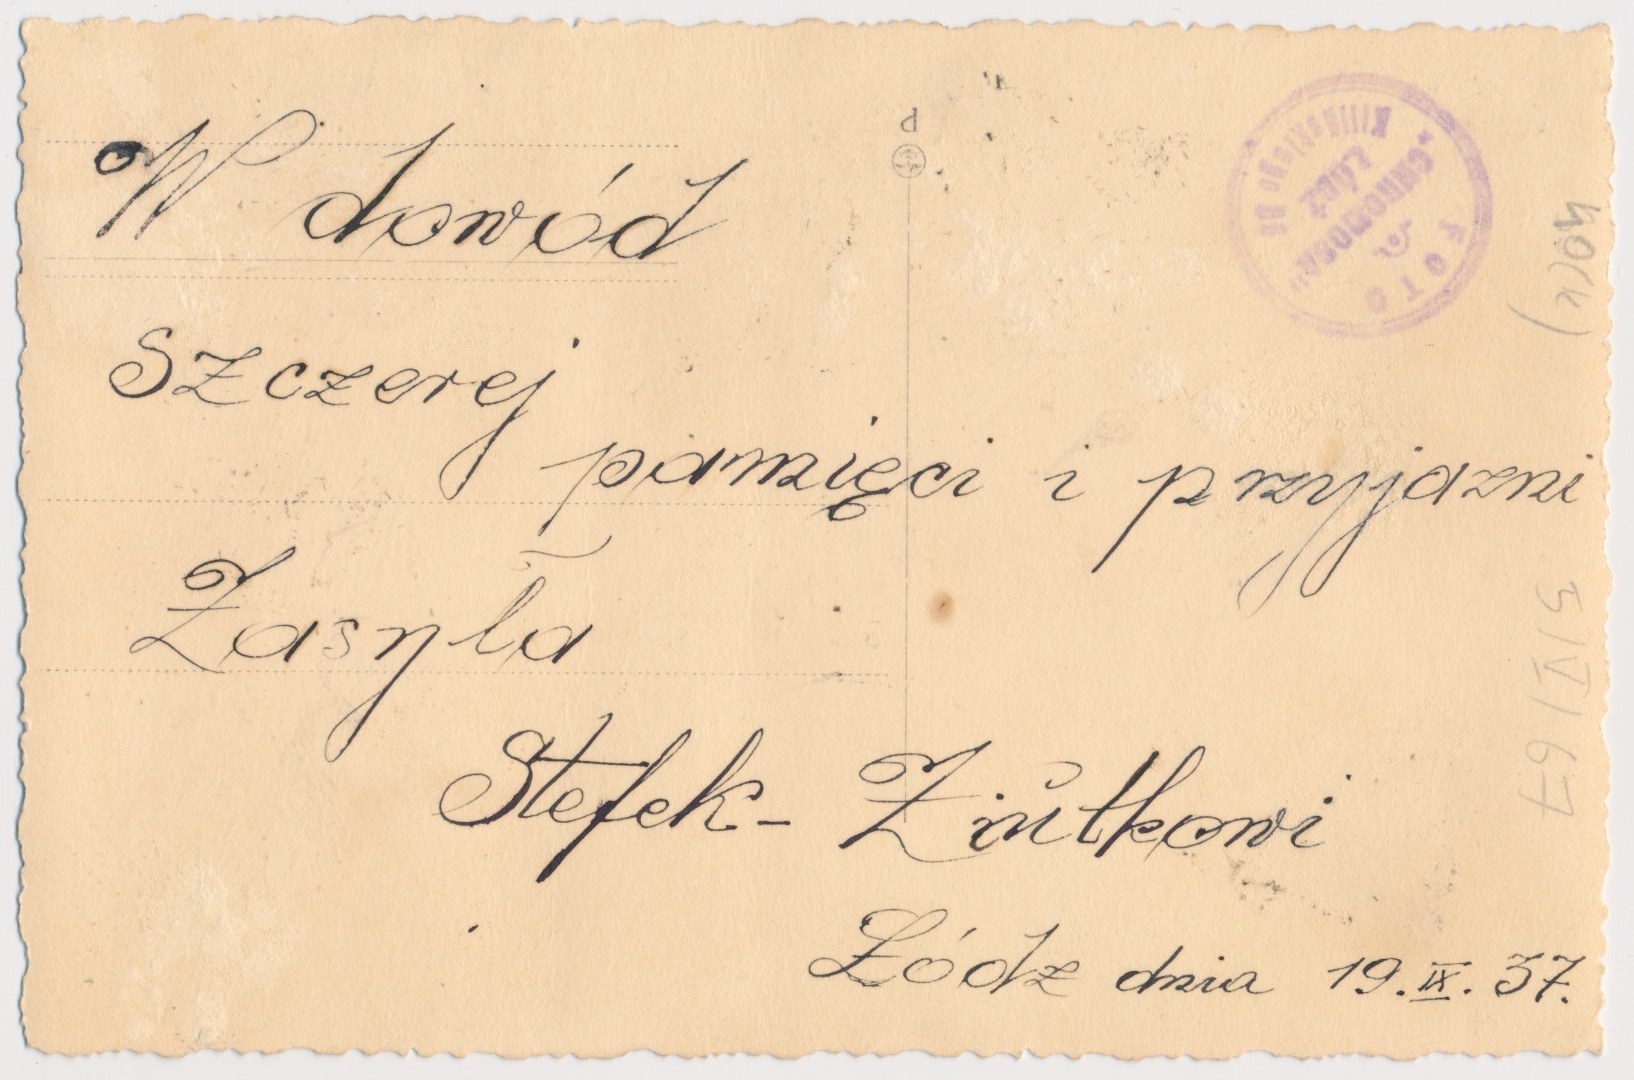 W dowód
Szczerej
pamięci i przyjazni
Zasyła
Stefek - Ziutkowi
Łódz dnia 19.IX.37.
FOTO
Łódź
Kilińskiego
P
5/VI/67